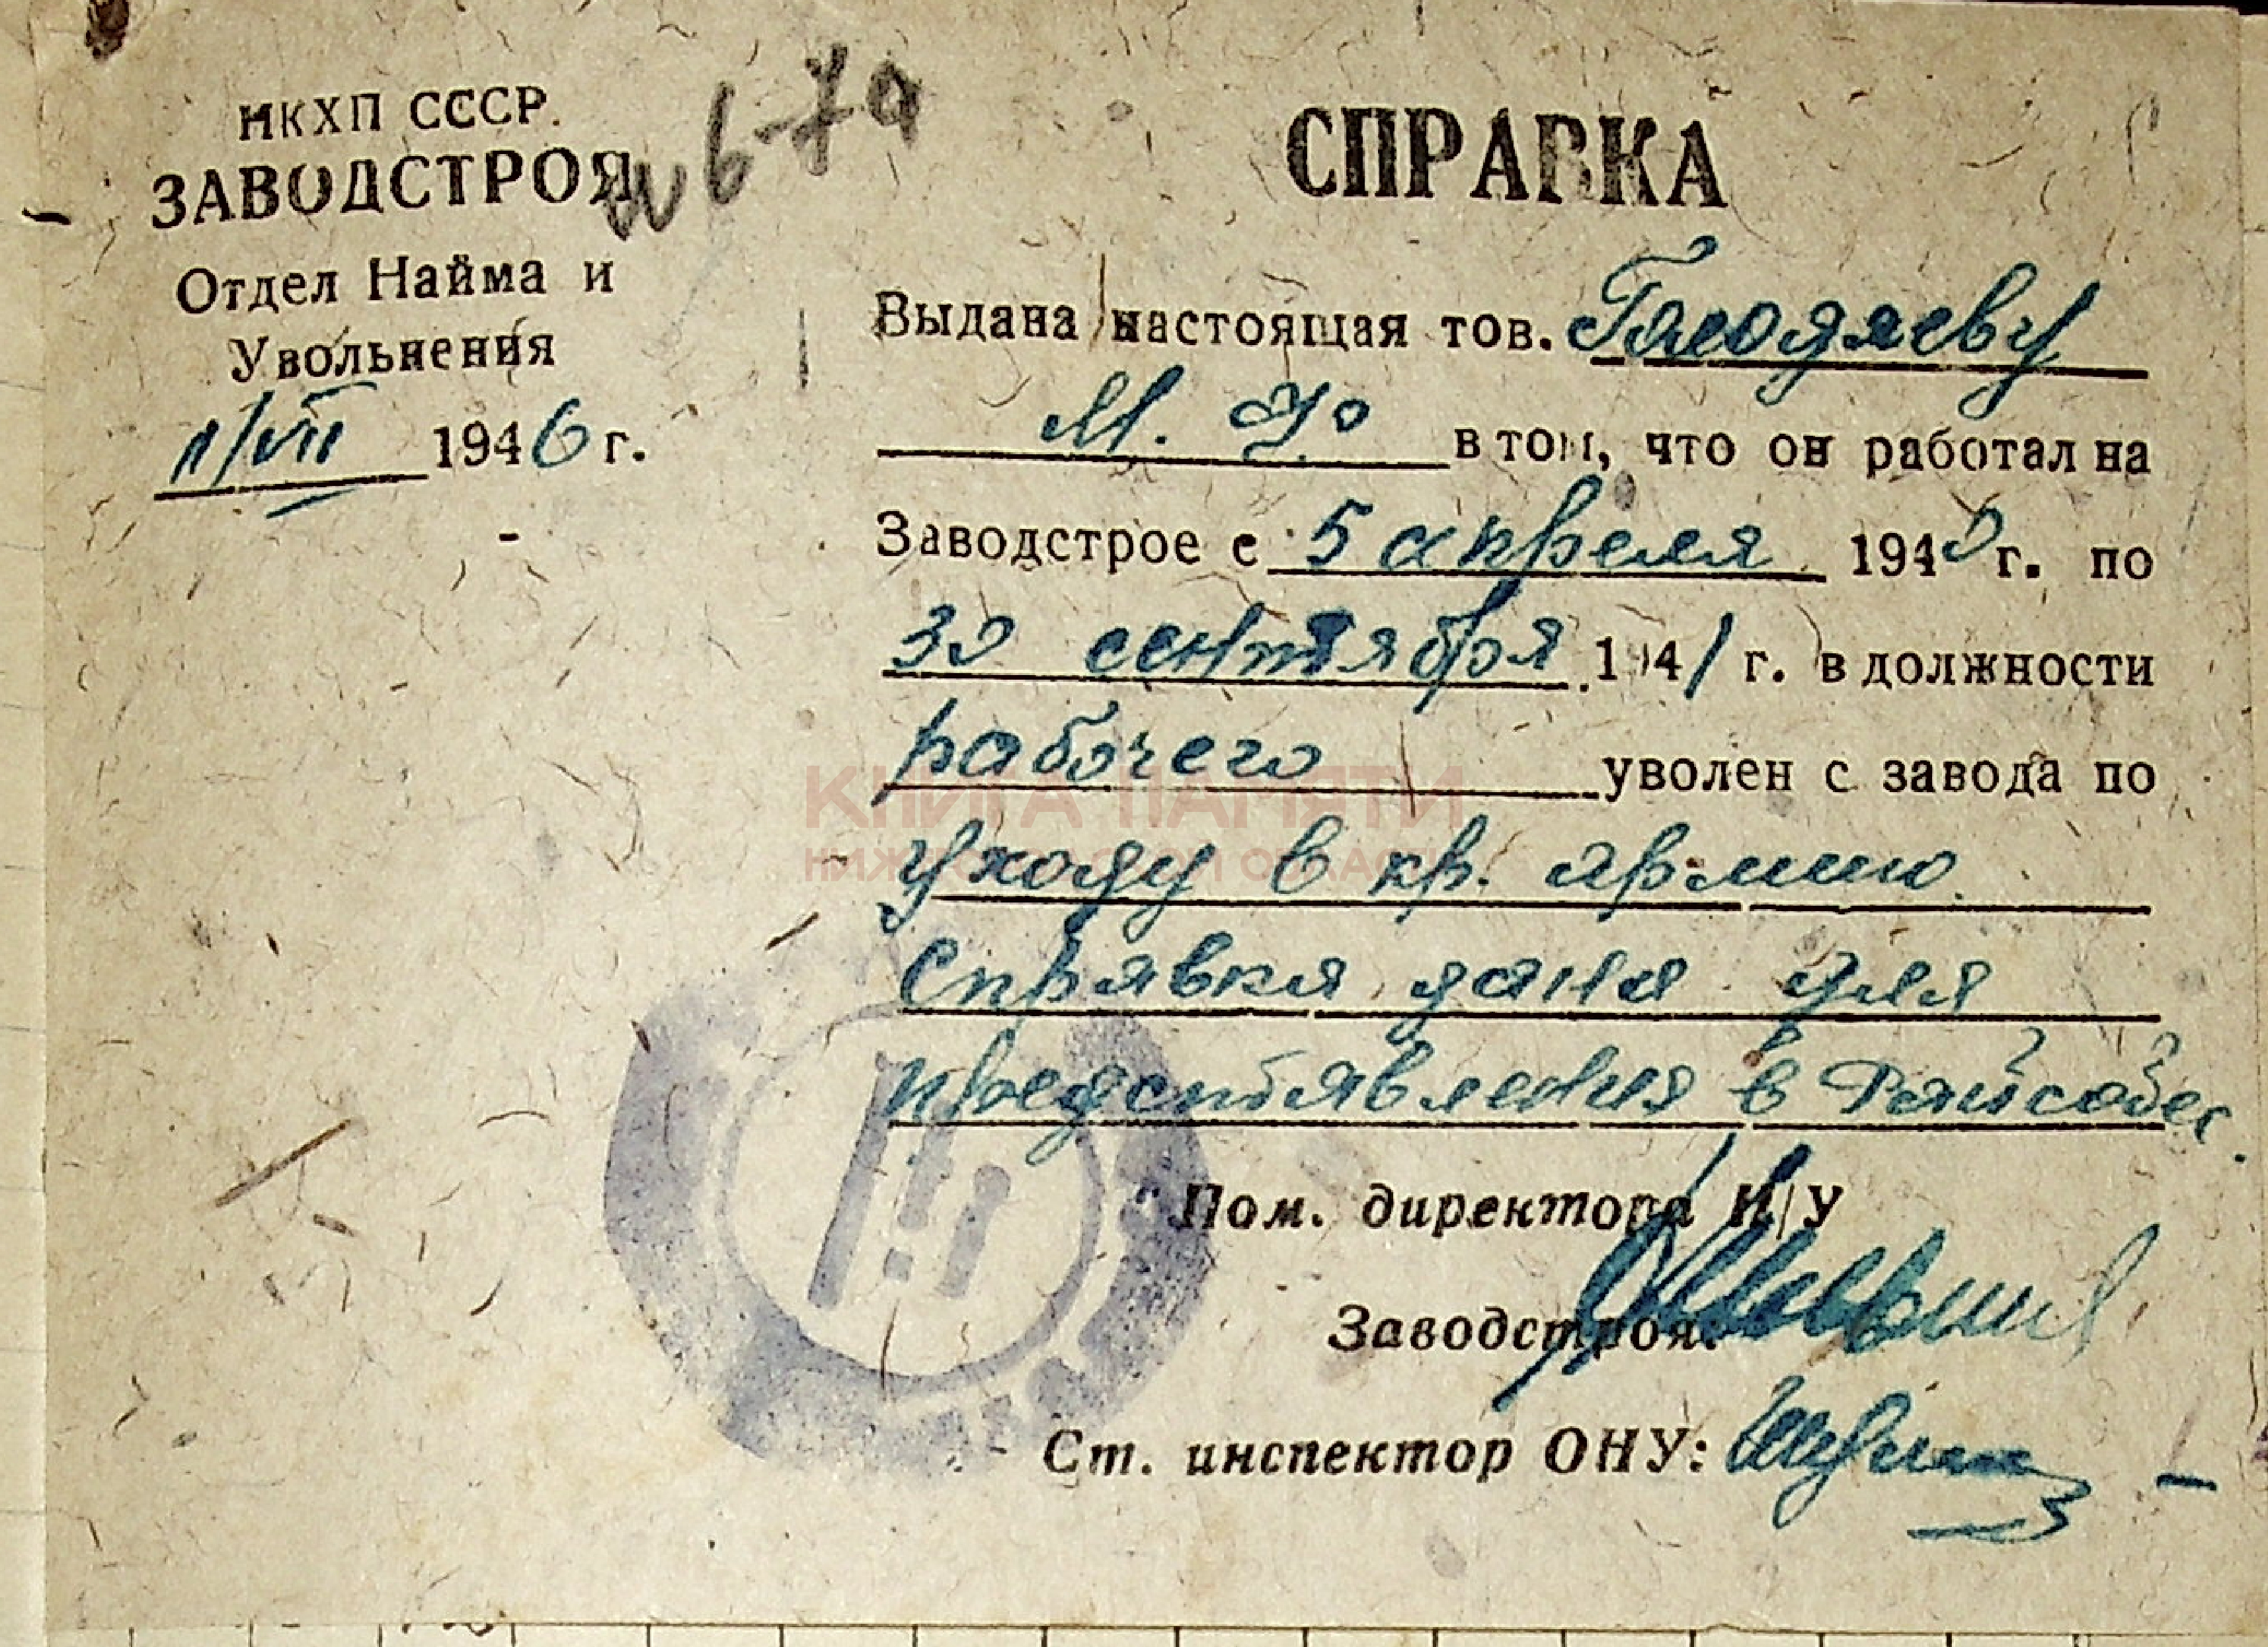 НКХП СССР.
ЗАВОДСТРОЯ
Отдел Найма и
Увольнения
11/VII 1946 г.
СПРАВКА
Выдана настоящая тов.
М. Ф. в том, что он работал на
Заводстрое с 5 апреля 1940 г. по
30 сентября 1941 г. в должности
рабочего уволен с завода по
уходу в кр. армию
Справка дана для
представления в Райсобес.
Пом. директора Н/У
Заводстроя:
Ст. инспектор ОНУ:
КНИГА ПАМЯТИ
НИЖЕГОРОДСКОЙ ОБЛАСТИ